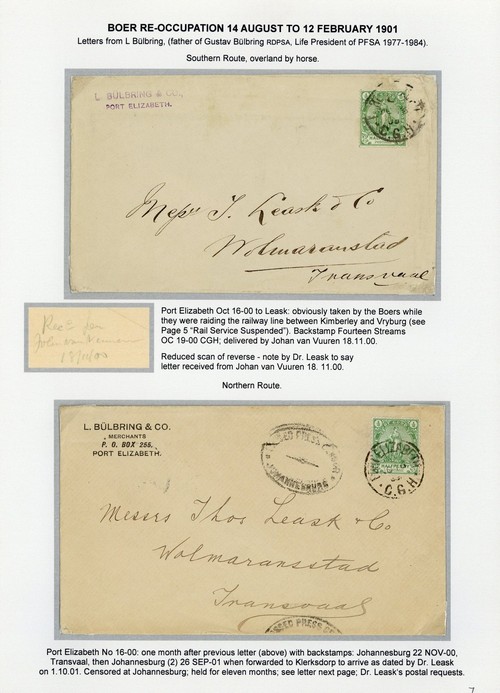 BOER RE-OCCUPATION 14 AUGUST TO 12 FEBRUARY 1901
Letters from L Bülbring, (father of Gustav Bülbring RDPSA, Life President of PFSA 1977-1984).
Southern Route, overland by horse.
L. BÜLBRING & CO.,
PORT ELIZABETH.
C.G.H.
Messrs T. Leask & Co
Wolmaransstad
Transvaal
Port Elizabeth Oct 16-00 to Leask: obviously taken by the Boers while
they were raiding the railway line between Kimberley and Vryburg (see
Page 5 "Rail Service Suspended"). Backstamp Fourteen Streams
OC 19-00 CGH; delivered by Johan van Vuuren 18.11.00.
Rec'd per
Johan van Vuuren
18/11/00
Reduced scan of reverse - note by Dr. Leask to say
letter received from Johan van Vuuren 18. 11.00.
Northern Route.
L. BÜLBRING & CO.
MERCHANTS
P. O. BOX 255,
PORT ELIZABETH.
PRESS
JOHANNESBURG
HALFPENNY
PORT ELIZABETH
C.G.H.
Messrs Thos Leask & Co
Wolmaransstad
Transvaal
PASSED PRESS
Port Elizabeth No 16-00: one month after previous letter (above) with backstamps: Johannesburg 22 NOV-00,
Transvaal, then Johannesburg (2) 26 SEP-01 when forwarded to Klerksdorp to arrive as dated by Dr. Leask
on 1.10.01. Censored at Johannesburg; held for eleven months; see letter next page; Dr. Leask's postal requests.
7